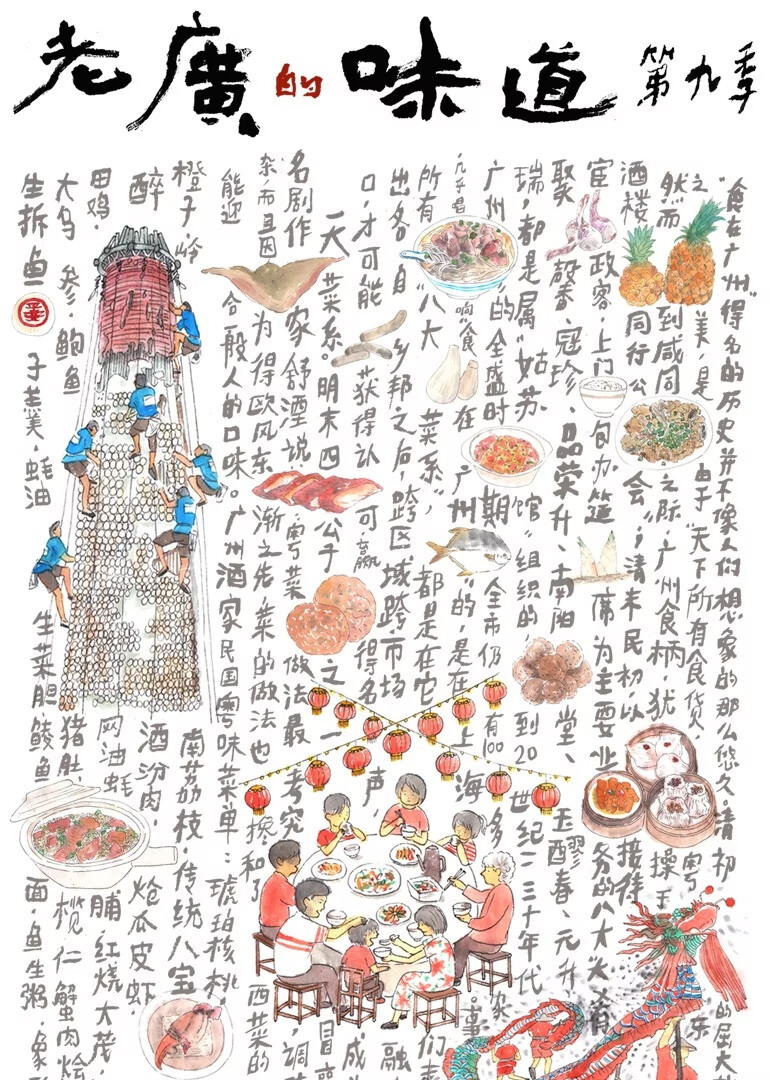 老廣的味道 第九季
"食在广州"得名的历史并不像人们想象的那么悠久,清初的屈大
之美,是由于"天下所有食货,粤东
然而到咸同之际,广州食柄,犹操于
酒楼同行公会";清末民初,以接待
宦政客,上门包办筵席为主要业务的八大
聚馨、冠珍、品荣升、南阳堂、玉醪春、元升
瑞,都是属"姑苏馆"组织的,到20世纪二三十年代
广州的全盛时期全市仍有100多家
响"食在广州"的,是在上海。事
所有"八大菜系",都是在它们
出各自乡邦之后,跨区域跨市场融
口,才可能获得认可,赢得名声,成
一大菜系。明末四公子之一冒
名剧作家舒湮说:粤菜做法最考究,调
杂,而且因为得欧风东渐之先,菜的做法也掺和了西菜的
能迎合一般人的口味。广州酒家民国粤味菜单:琥珀核桃,
橙子、岭南荔枝、传统八宝
醉酒汾肉、炝瓜皮虾、
田鸡、网油蚝脯、红烧大茂
大乌参、鲍鱼猪肚、榄仁蟹肉烩
生拆鱼子羹、蚝油生菜胆鲮鱼面、鱼生粥、象形